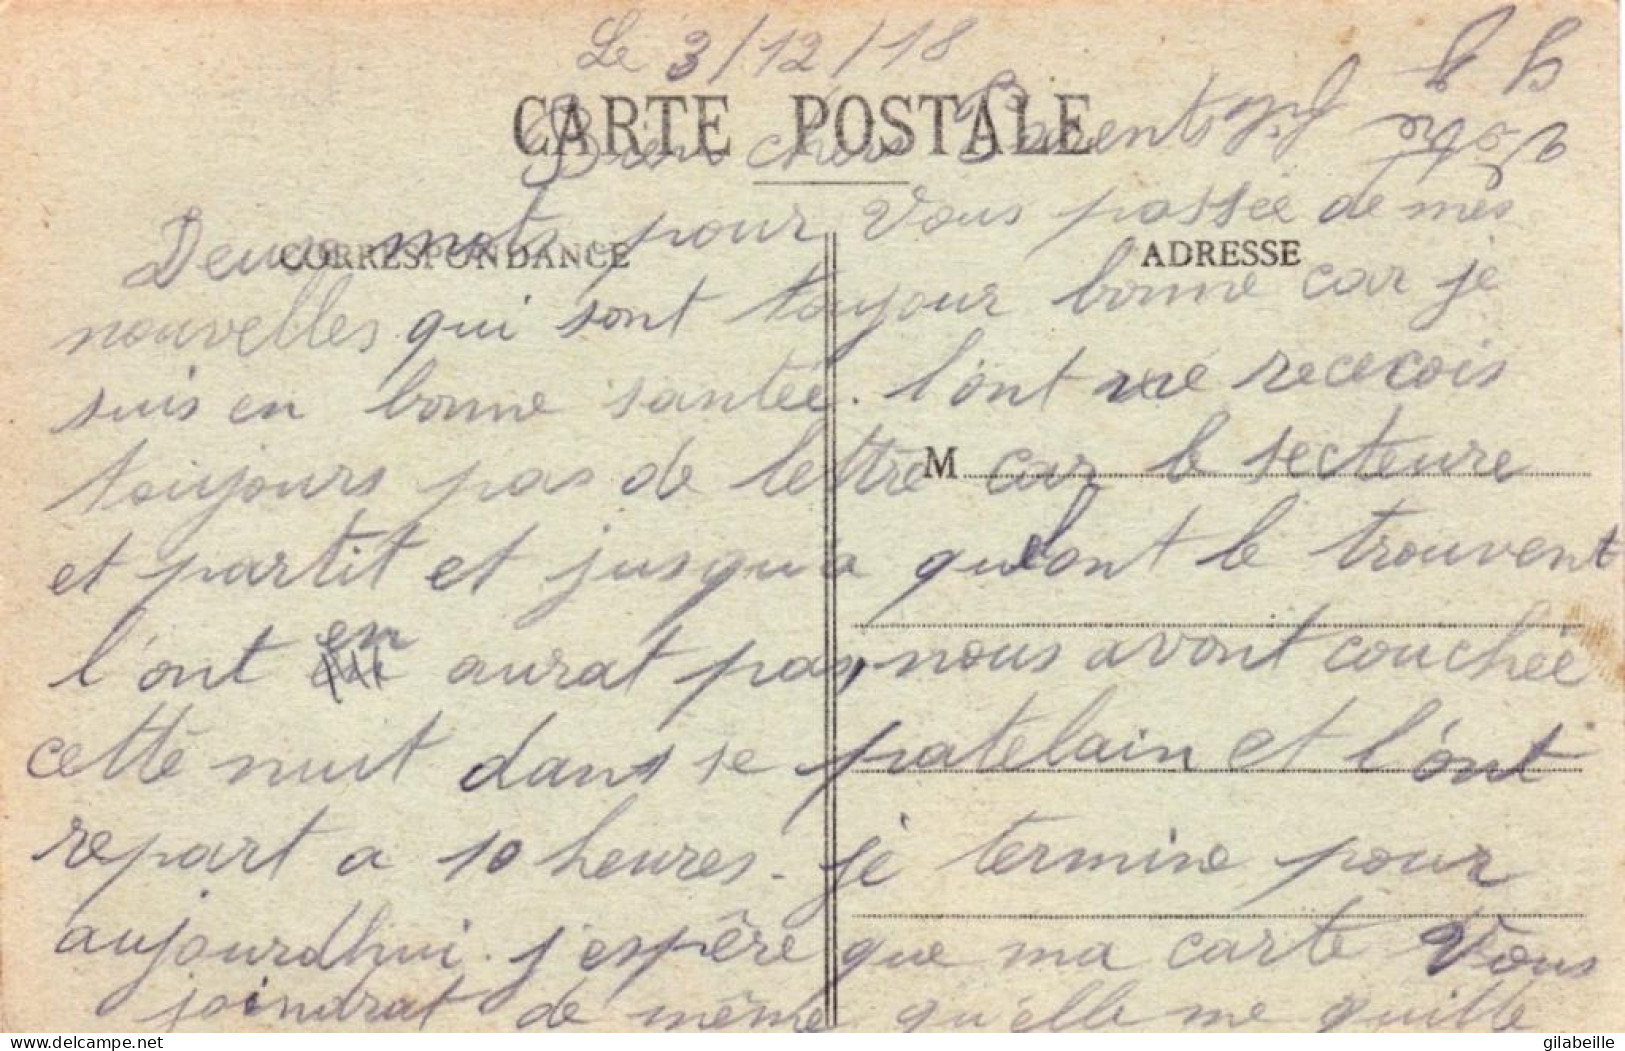 Le 3/12/18
CARTE POSTALE
Bien chers Parents
Votre fils
CORRESPONDANCE
ADRESSE
Deux mots pour Vous passée de mes
nouvelles qui sont toujour bonne car je
suis en bonne santée. l'ont ne rececois
toujours pas de lettre car le secteure
M
et partit et jusqu'a quelont le trouvent
l'ont en aurat pas, nous avont couchée
cette nuit dans se patelain et l'ont
repart a 10 heures. je termine pour
aujourdhui. j'espère que ma carte Vous
joindrat de même qu'elle me quitte
delcampe.net
gilabeille